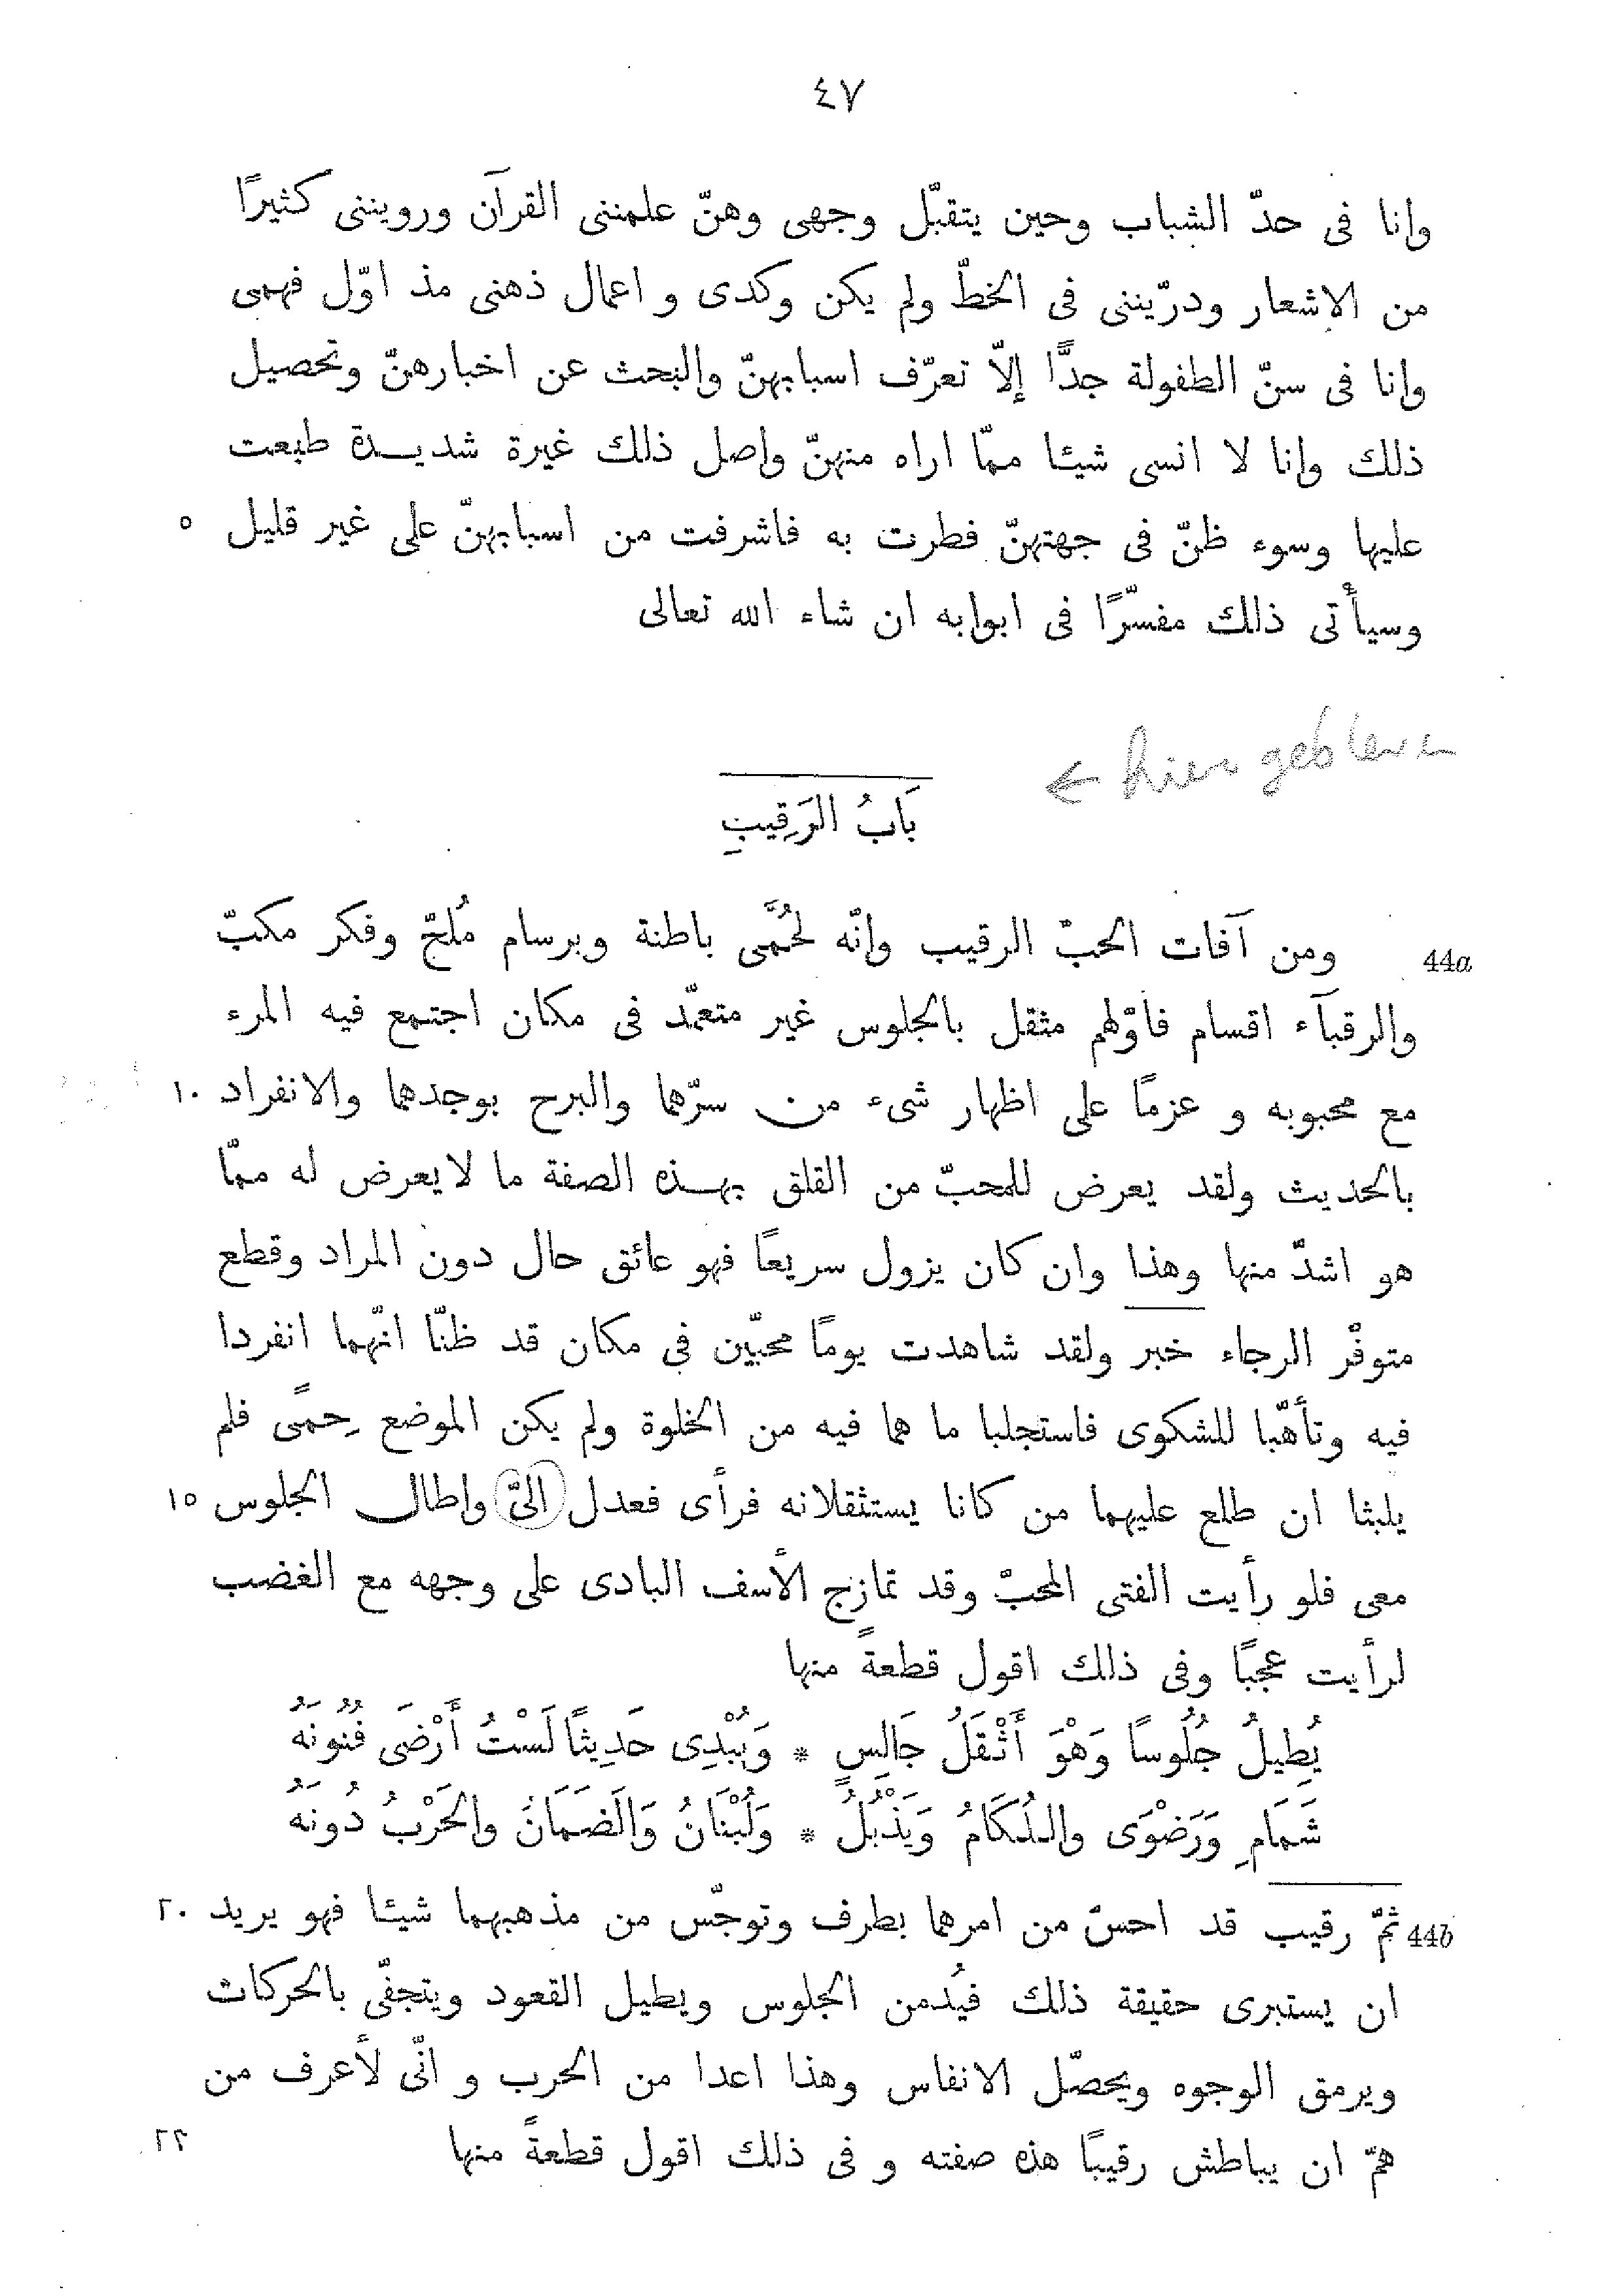 ٤٧
وانا فى حدّ الشباب وحين يتقبّل وجهى وهنّ علمننى القرآن وروينننى كثيرًا
من الاشعار ودرّبننى فى الخطّ ولم يكن وكدى و اعمال ذهنى مذ اوّل فهمى
وانا فى سنّ الطفولة جدًّا إلاّ تعرّف اسبابهنّ والبحث عن اخبارهنّ وتحصيل
ذلك وانا لا انسى شيئا ممّا اراه منهنّ واصل ذلك غيرة شديدة طبعت
عليها وسوء ظنّ فى جهتهنّ فطرت به فاشرفت من اسبابهنّ على غير قليل ٥
وسيأتى ذلك مفسّرًا فى ابوابه ان شاء الله تعالى
← hier gebleven
بَابُ الرَقِيبِ
44a ومن آفات الحبّ الرقيب وانّه لحُمَّى باطنة وبرسام مُلحّ وفكر مكبّ
والرقبآء اقسام فاوّلهم مثقل بالجلوس غير متعمّد فى مكان اجتمع فيه المرء
مع محبوبه و عزمًا على اظهار شىء من سرّهما والبرح بوجدهما والانفراد ١٠
بالحديث ولقد يعرض للمحبّ من القلق بهذه الصفة ما لا يعرض له ممّا
هو اشدّ منها وهذا وان كان يزول سريعًا فهو عائق حال دون المراد وقطع
متوفّر الرجاء خبر ولقد شاهدت يومًا محبّين فى مكان قد ظنّا انّهما انفردا
فيه وتأهّبا للشكوى فاستجلبا ما هما فيه من الخلوة ولم يكن الموضع حِمًى فلم
يلبثا ان طلع عليهما من كانا يستثقلانه فرأى فعدل الىّ واطال الجلوس ١٥
معى فلو رأيت الفتى المحبّ وقد تمازج الأسف البادى على وجهه مع الغضب
لرأيت عجبًا وفى ذلك اقول قطعةً منها
يُطِيلُ جُلُوسًا وَهْوَ أَثْقَلُ جَالِسٍ * وَيُبْدِى حَدِيثًا لَسْتُ أَرْضَى فُنُونَهُ
شَمَامِ وَرَضْوَى واللُكَامُ وَيَذْبُلٌ * وَلُبْنَانُ وَالضَمَانَ والحَرْبُ دُونَهُ
44b ثمّ رقيب قد احسّ من امرهما بطرف وتوجّس من مذهبهما شيئا فهو يريد ٢٠
ان يستبرى حقيقة ذلك فيُدمن الجلوس ويطيل القعود ويتجفّى بالحركات
ويرمق الوجوه ويحصّل الانفاس وهذا اعدا من الحرب و انّى لأعرف من
همّ ان يباطش رقيبًا هذه صفته و فى ذلك اقول قطعةً منها ٢٢